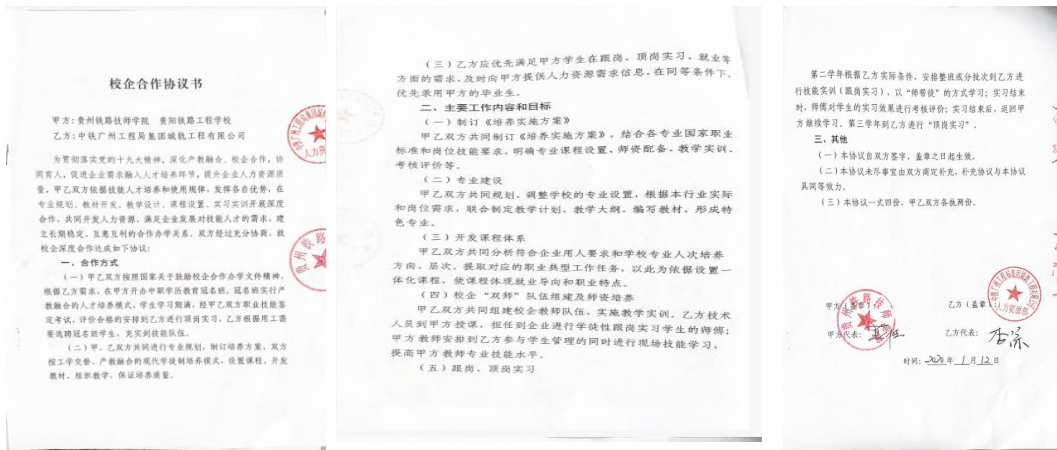 校企合作协议书
甲方：贵州铁路技师学院 贵阳铁路工程学校
乙方：中铁广州工程局集团城轨工程有限公司
为贯彻落实党的十九大精神，深化产教融合、校企合作，协
同育人，促进企业需求融入人才培养环节，提升企业人力资源质
量，甲乙双方依据技能人才培养和使用规律，发挥各自优势，在
专业规划、教材开发、教学设计、课程设置、实习实训开展深度
合作，共同开发人力资源，满足企业发展对技能人才的需求，建
立长期稳定、互惠互利的合作办学关系。双方经过充分协商，就
校企深度合作达成如下协议：
一、合作方式
（一）甲乙双方按照国家关于鼓励校企合作办学文件精神，
根据乙方需求，在甲方开办中职学历教育冠名班。冠名班实行产
教融合的人才培养模式，学生学习期满，经甲乙双方职业技能鉴
定考试，评价合格的安排到乙方进行顶岗实习，乙方根据用工需
要选聘冠名班学生，充实到技能队伍。
（二）甲、乙双方共同进行专业规划，制订培养方案，双方
按工学交替、产教融合的现代学徒制培养模式，设置课程、开发
教材、组织教学，保证培养质量。
（三）乙方应优先满足甲方学生在跟岗、顶岗实习、就业等
方面的需求，及时向甲方提供人力资源需求信息，在同等条件下，
优先录用甲方的毕业生。
二、主要工作内容和目标
（一）制订《培养实施方案》
甲乙双方共同制订《培养实施方案》，结合各专业国家职业
标准和岗位技能要求，明确专业课程设置、师资配备、教学实训、
考核评价等。
（二）专业建设
甲乙双方共同规划、调整学校的专业设置，根据本行业实际
和岗位需求，联合制定教学计划、教学大纲、编写教材，形成特
色专业。
（三）开发课程体系
甲乙双方共同分析符合企业用人要求和学校专业人次培养
方向、层次，提取对应的职业典型工作任务，以此为依据设置一
体化课程，使课程体现就业导向和职业特点。
（四）校企“双师”队伍组建及师资培养
甲乙双方共同组建校企教师队伍、实施教学实训。乙方技术
人员到甲方授课、担任到企业进行学徒性跟岗实习学生的师傅；
甲方教师安排到乙方参与学生管理的同时进行现场技能学习，
提高甲方教师专业技能水平。
（五）跟岗、顶岗实习
第二学年根据乙方实际条件，安排整班或分批次到乙方进
行技能实训（跟岗实习），以“师带徒”的方式学习；实习结束
时，师傅对学生的实习效果进行考核评价；实习结束后，返回甲
方继续学习。第三学年到乙方进行“顶岗实习”。
三、其他
（一）本协议自双方签字，盖章之日起生效。
（二）本协议未尽事宜由双方商定补充，补充协议与本协议
具同等效力。
（三）本协议一式四份，甲乙双方各执两份。
甲方（盖章）
乙方（盖章）
人力资源部
甲方代表：
乙方代表：
时间：2020年1月12日